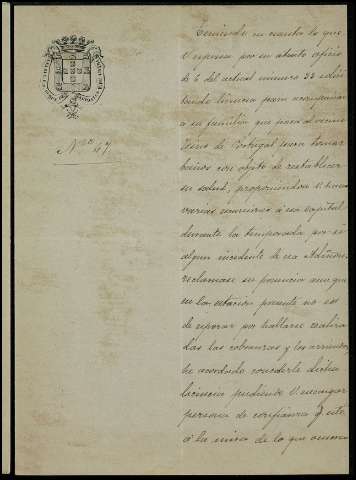 Nro. 47.
Teniendo en cuenta lo que
V. expresa por su atento oficio
de 6 del actual número 33 solici-
tando licencia para acompañar
a su familia que pasa al vecino
Reino de Portugal para tomar
baños con objeto de restablecer
su salud, proponiéndose V. hacer
varias escursiones á esa capital
durante la temporada por si
algun incidente de esa Admon.
reclamase su presencia aunque
en la estación presente no es
de esperar por hallarse realiza-
das las cobranzas y los arriendos,
he acordado concederle dicha
licencia pudiendo V. encargar
persona de confianza y esté
á la mira de lo que ocurra